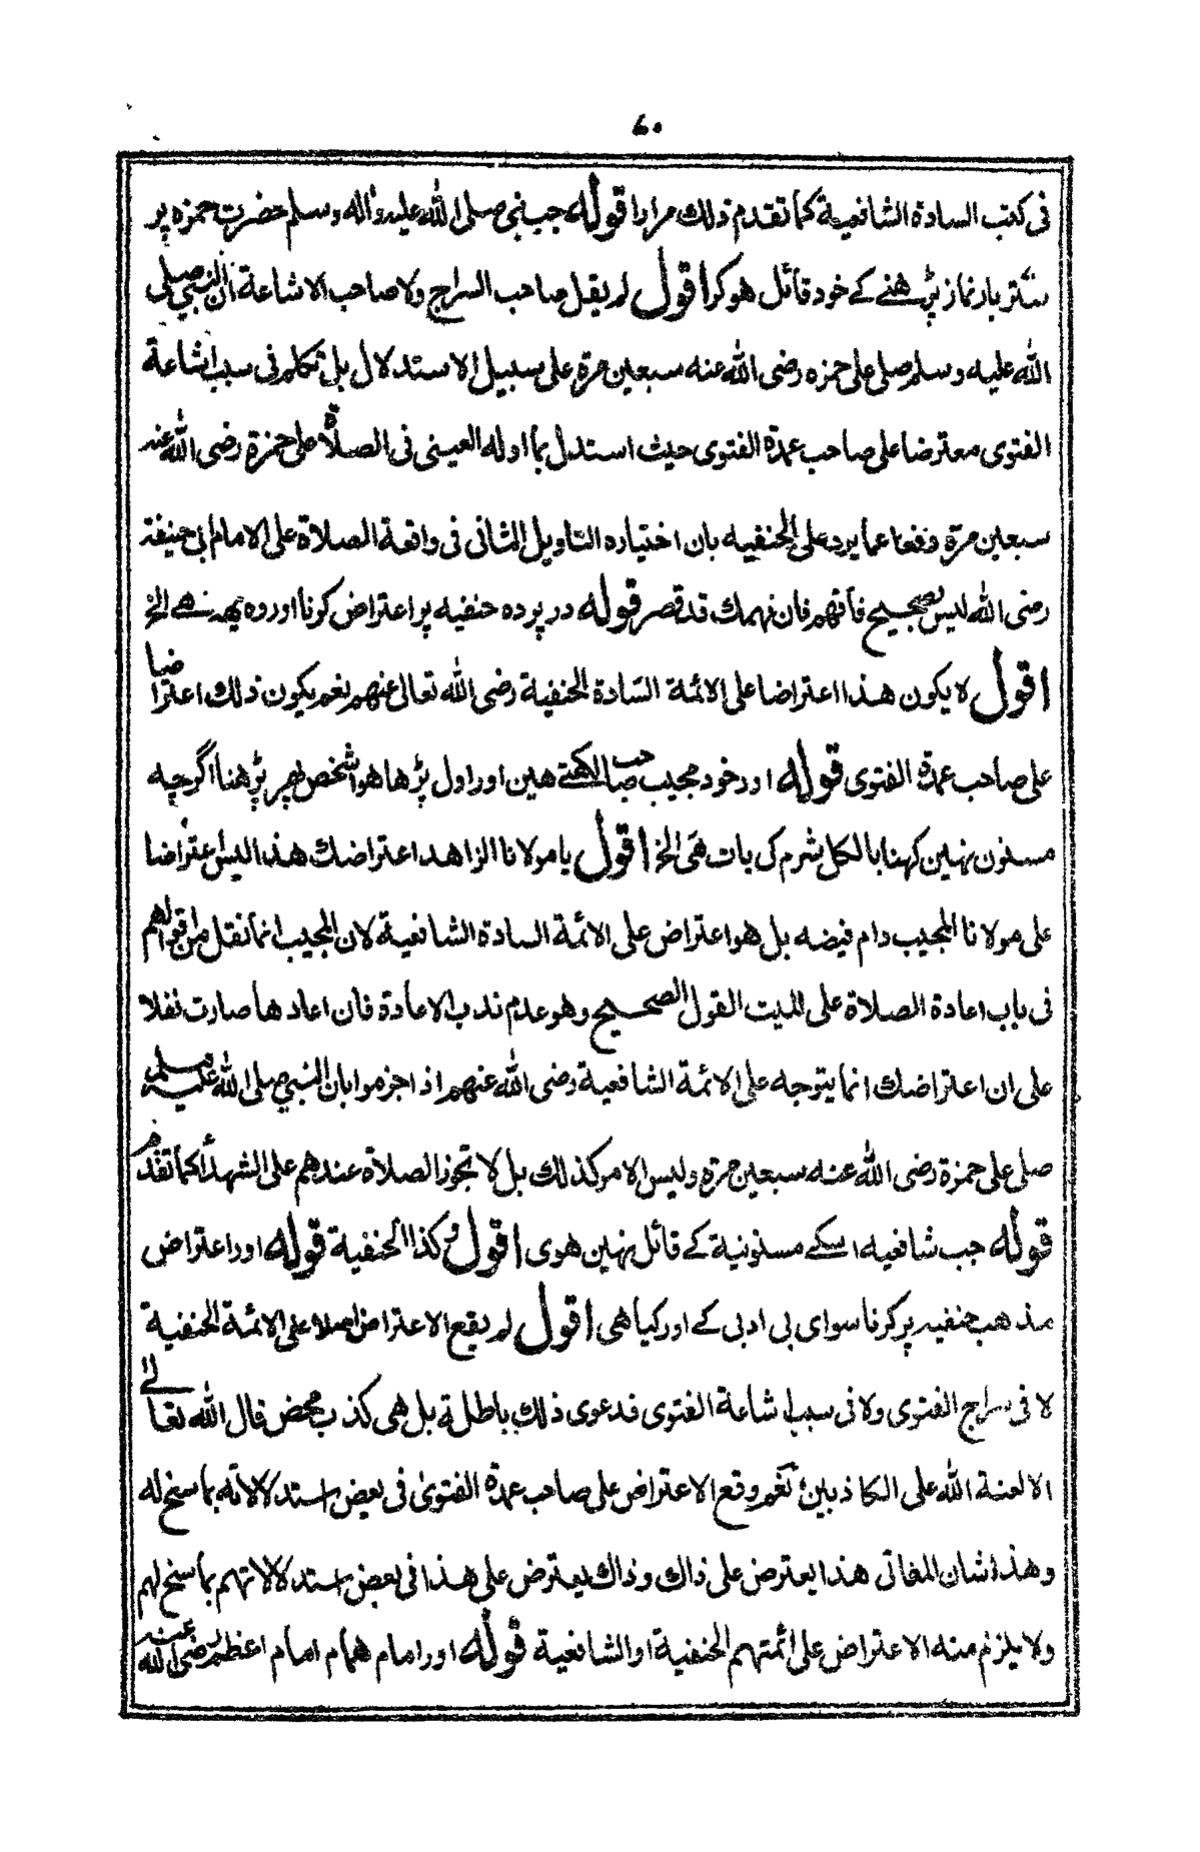 ٦٠
فی کتب السادة الشافعیة کما تقدم ذلك مرارا قوله جب نبی صلی الله علیه واٰله وسلم حضرت حمزه پر
ستر بار نماز پڑھنے کے خود قائل هو کر اقول لم یقل صاحب السراج ولا صاحب الاشاعة ان النبی صلی
الله علیه وسلم صلی علی حمزه رضی الله عنه سبعین مرة علی سبیل الاستدلال بل تکلم فی سبب اشاعة
الفتوی معترضا علی صاحب عمدة الفتوی حیث استدل بما اوله العینی فی الصلاة علی حمزة رضی الله عنه
سبعین مرة دفعا عما یرد علی الحنفیه بان اختیاره التاویل الثانی فی واقعة الصلاة علی الامام ابی حنیفة
رضی الله لیس بصحیح فافهم فان فهمك قد قصر قوله در پرده حنفیه پر اعتراض کرنا اور وه یهه هے الخ
اقول لا یکون هذا اعتراضا علی الائمة السّادة الحنفیة رضی الله تعالی عنهم نعم یکون ذلك اعتراضا
علی صاحب عمدة الفتوی قوله اور خود مجیب صاحب لکهتے هین اور اول پڑها هوا شخص پهر پڑهنا اگرچه
مسنون نهین کهنا بالکل شرم کی بات هی الخ اقول یا مولانا الزاهد اعتراضك هذا لیس اعتراضا
علی مولانا المجیب دام فیضه بل هو اعتراض علی الائمة السادة الشافعیة لان المجیب انما نقل من اقوالهم
فی باب اعادة الصلاة علی المیت القول الصحیح وهو عدم ندب الاعادة فان اعادها صارت نفلا
علی ان اعتراضك انما یتوجه علی الائمة الشافعیة رضی الله عنهم اذا جزموا بان النبی صلی الله علیه وسلم
صلی علی حمزة رضی الله عنه سبعین مرة ولیس الامر کذلك بل لا تجوز الصلاة عندهم علی الشهدأ کما تقدم
قوله جب شافعیه اسکے مسنونیة کے قائل نهین هوی اقول وکذا الحنفیة قوله اور اعتراض
مذهب حنفیه پر کرنا سوای بی ادبی کے اور کیا هی اقول لم یقع الاعتراض اصلا علی الائمة الحنفیة
لا فی سراج الفتوی ولا فی سبب اشاعة الفتوی فدعوی ذلك باطلة بل هی کذب محض قال الله تعالیٰ
الا لعنة الله علی الکاذبین نعم وقع الاعتراض علی صاحب عمدة الفتویٰ فی بعض استدلالاته بما سنح له
وهذا شان المفاتی هذا یعترض علی ذاك وذاك یعترض علی هذا فی بعض استدلالاتهم بما سنح لهم
ولا یلزم منه الاعتراض علی ائمتهم الحنفیة او الشافعیة قوله اور امام همام امام اعظم رضی الله عنه